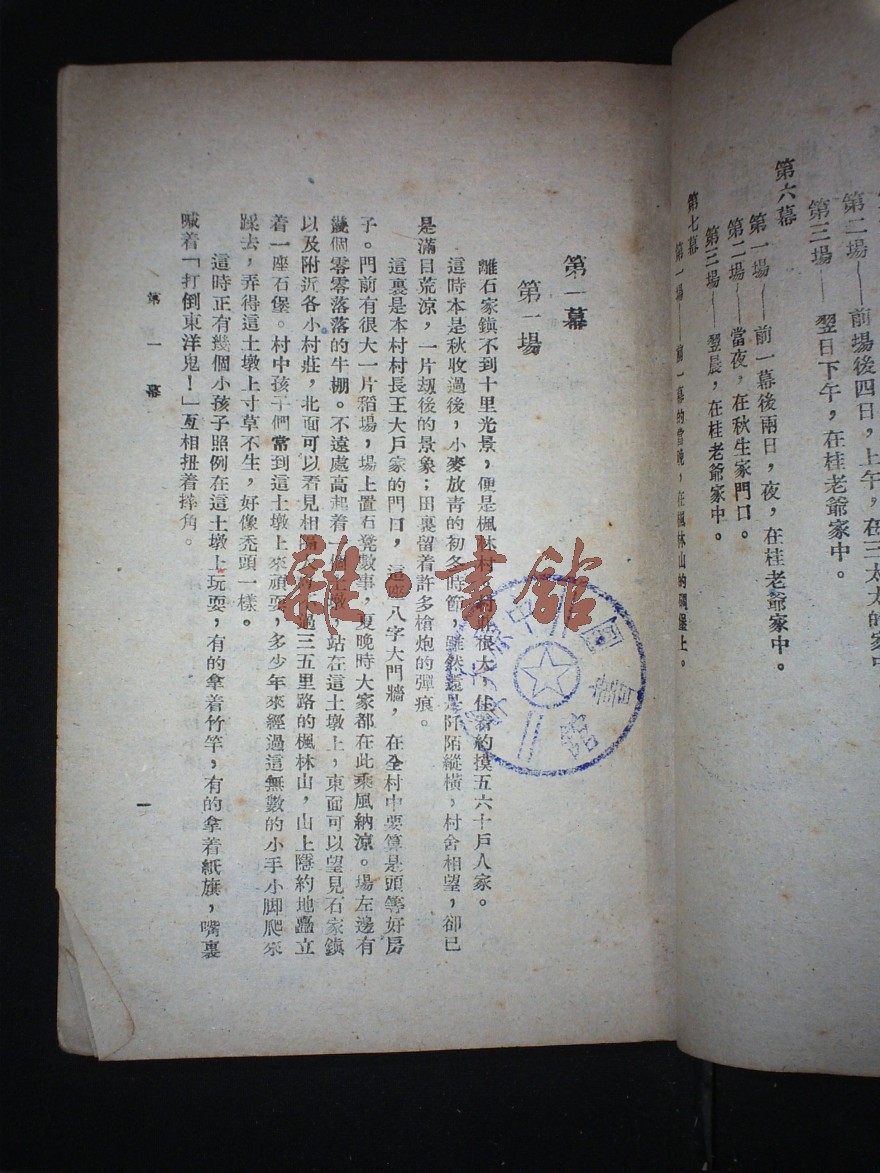 第二場——前場後四日，上午，在三太太的家中
第三場——翌日下午，在桂老爺家中。
第六幕
第一場——前一幕後兩日，夜，在桂老爺家中。
第二場——當夜，在秋生家門口。
第三場——翌晨，在桂老爺家中。
第七幕
第一場——前一幕的當晚，在楓林山的碉堡上。
第一幕
第一場
離石家鎭不到十里光景，便是楓林村，村莊很大，住着約摸五六十戶人家。
這時本是秋收過後，小麥放靑的初冬時節，雖然還是阡陌縱橫，村舍相望，卻已
是滿目荒涼，一片刼後的景象；田裏留着許多槍炮的彈痕。
這裏是本村村長王大戶家的門口，這座八字大門牆，在全村中要算是頭等好房
子。門前有很大一片稻場，場上置石凳數事，夏晚時大家都在此乘風納涼。場左邊有
幾個零零落落的牛棚。不遠處高起着一個土墩，站在這土墩上，東面可以望見石家鎭
以及附近各小村莊，北面可以看見相隔 過三五里路的楓林山，山上隱約地矗立
着一座石堡。村中孩子們常到這土墩上來頑耍，多少年來經過這無數的小手小脚爬來
踩去，弄得這土墩上寸草不生，好像禿頭一樣。
這時正有幾個小孩子照例在這土墩上玩耍，有的拿着竹竿，有的拿着紙旗，嘴裏
喊着「打倒東洋鬼！」互相扭着摔角。
第一幕
一
雜·書館
圖書館